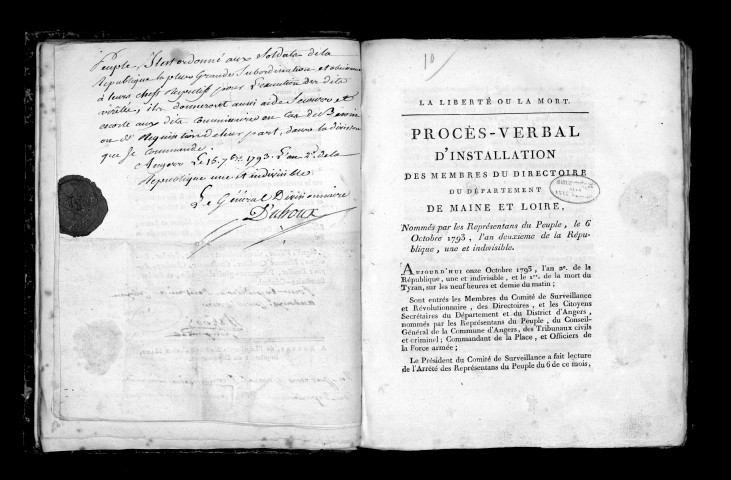 Peuple, Il est ordonné aux Soldats de la
République la plus Grande Subordination et obéissance
à leurs chefs respectif pour l'execution des dits
arrêtés, ils donneront aussi aide Secours et
escorte aux dits Commissaires en cas de Besoin
ou de Requisition de leur part, dans la division
que Je Commande.
Angers Le 15. 7bre 1793. l'an 2e. de la
République une et indivisible.
Le Général Divisionnaire
Duhoux
10
LA LIBERTÉ OU LA MORT.
PROCÈS-VERBAL
D'INSTALLATION
DES MEMBRES DU DIRECTOIRE
DU DÉPARTEMENT
DE MAINE ET LOIRE,
Nommés par les Représentans du Peuple, le 6
Octobre 1793, l'an deuxieme de la Répu-
blique, une et indivisible.
AUJOURD'HUI onze Octobre 1793, l'an 2e. de la
République, une et indivisible, et le 1er. de la mort du
Tyran, sur les neuf heures et demie du matin;
Sont entrés les Membres du Comité de Surveillance
et Révolutionnaire, des Directoires, et les Citoyens
Secrétaires du Département et du District d'Angers,
nommés par les Représentans du Peuple, du Conseil-
Général de la Commune d'Angers, des Tribunaux civils
et criminel; Commandant de la Place, et Officiers de
la Force armée;
Le Président du Comité de Surveillance a fait lecture
de l'Arrêté des Représentans du Peuple du 6 de ce mois,